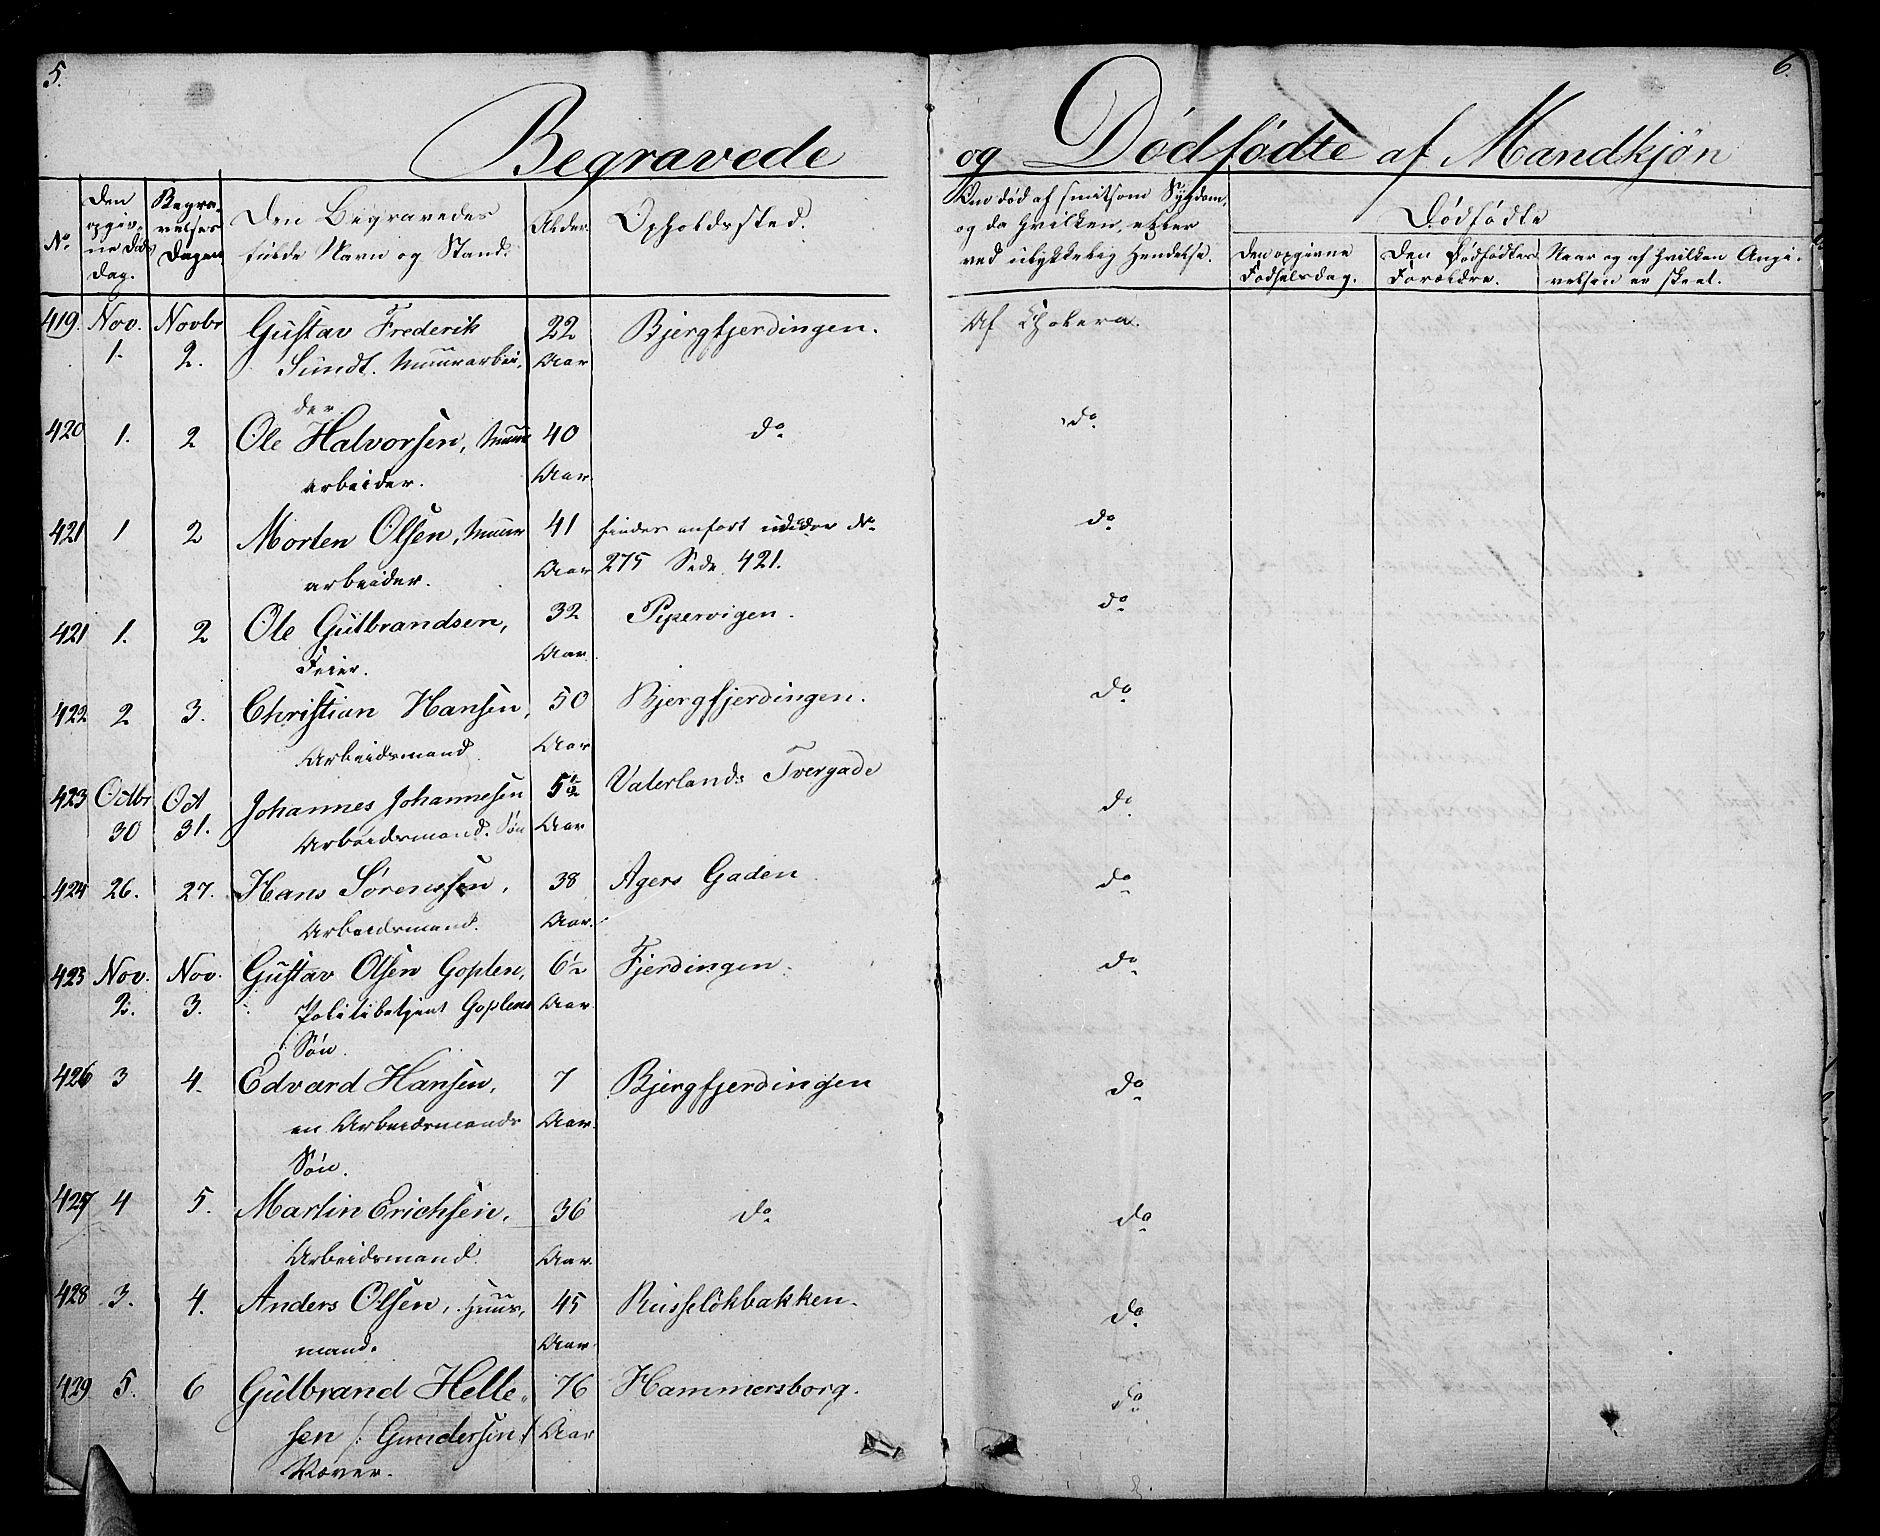 5.
6.
Begravede
og Dødfødte af Mandkjøn
No
Den opgivne Døds Dag.
Begravelses Dagen
Den Begravedes fulde Navn og Stand.
Alder.
Opholdssted.
død af smitsom Sygdom,
og da hvilken, eller
ved ulykkelig Hendelse.
Dødfødte
Den opgivne Fødselsdag.
Den Dødfødtes Forældre.
Naar og af hvilken Angivelsen er skeet.
419. Nov. 1. Novbr 2. Gustav Frederik 22 Aar Bjergfjerdingen. Af Cholera.
Sundt. Muurarbei,
der
420 1. 2 Ole Halvorsen, Muur 40 Aar do do
arbeider.
421 1 2 Morten Olsen, Muur 41 Aar findes anført No do
arbeider. 275 Side 421.
421 1. 2 Ole Gulbrandsen, 32 Aar Pipervigen. do
Feier.
422 2 3. Christian Hansen, 50 Aar Bjergfjerdingen. do
Arbeidsmand
423 Octbr 30 Oct 31. Johannes Johannesen 5½ Aar Vaterlands Tvergade do
Arbeidsmand. Søn
424 26. 27. Hans Sørenssen, 38 Aar. Agers Gaden do
Arbeidsmand.
425 Nov. 2. Nov. 3. Gustav Olsen Goplen, 6½ Aar Fjerdingen. do
Politibetjent Goplens
Søn.
426 3 4. Edvard Hansen, 7 Aar. Bjergfjerdingen do
en Arbeidsmands
Søn.
427 4 5. Martin Erichsen, 36 Aar. do do
Arbeidsmand.
428 3. 4. Anders Olsen, Huus, 45 Aar. Russeløkbakken. do
mand.
429. 5. 6 Gulbrand Helle- 76 Aar Hammersborg. do
sen /: Gundersen :/
Væver.